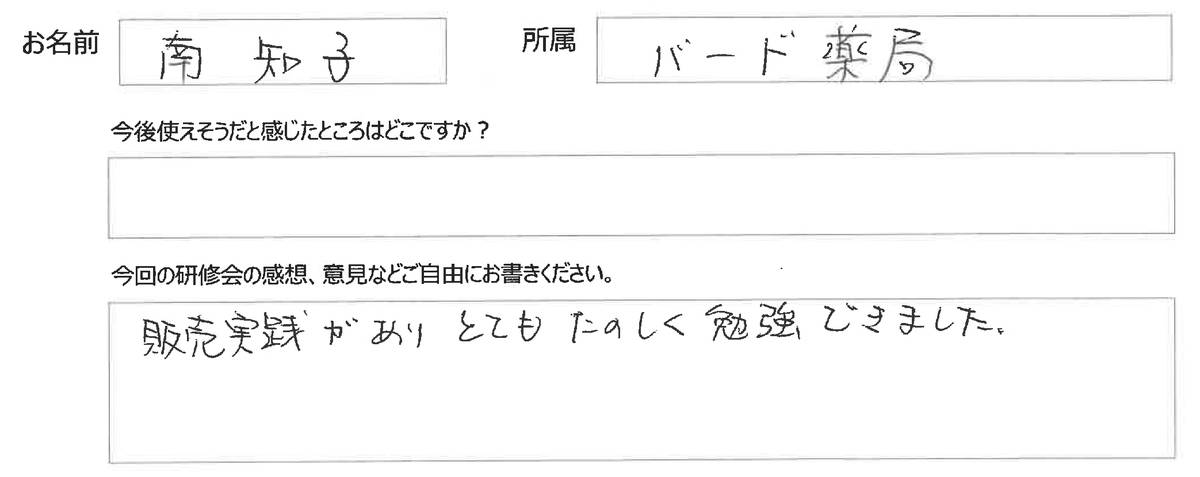 お名前 南 知子 所属 バード薬局
今後使えそうだと感じたところはどこですか？
今回の研修会の感想、意見などご自由にお書きください。
販売実践がありとてもたのしく勉強できました。